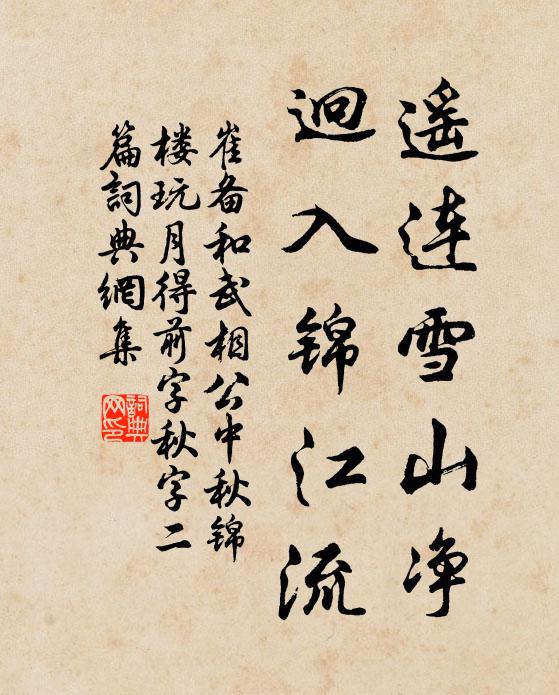 遥连雪山净
迥入锦江流
崔备和武相公中秋锦
楼玩月得前字秋字二
篇詞典網集
詞典网印